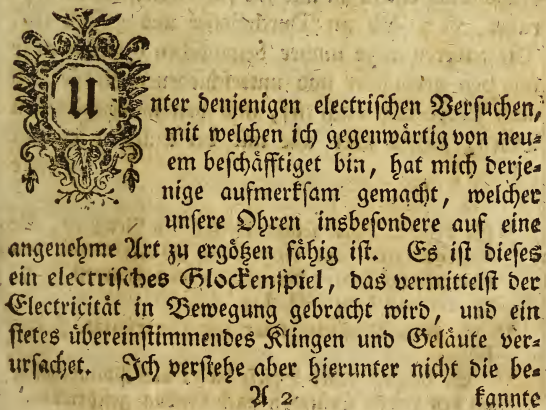 Unter denjenigen electrischen Versuchen,
mit welchen ich gegenwärtig von neu=
em beschäfftiget bin, hat mich derje=
nige aufmerksam gemacht, welcher
unsere Ohren insbesondere auf eine
angenehme Art zu ergötzen fähig ist. Es ist dieses
ein electrisches Glockenspiel, das vermittelst der
Electricität in Bewegung gebracht wird, und ein
stetes übereinstimmendes Klingen und Geläute ver=
ursachet. Ich verstehe aber hierunter nicht die be=
A 2 kannte